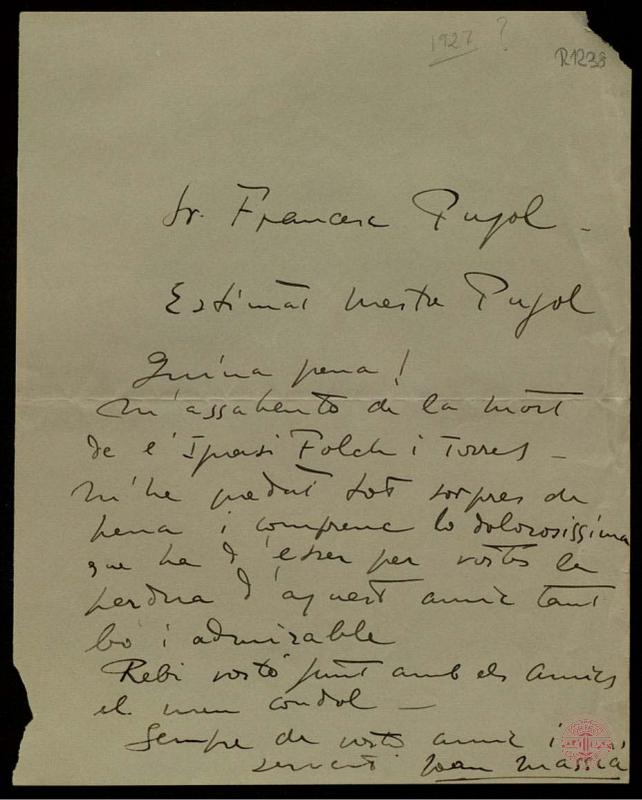 1927 ?
R1238
Sr. Francesc Pujol -
Estimat Mestre Pujol
Quina pena!
M'assabento de la mort
de l'Ignasi Folch i Torres -
M'he quedat tot sorpres de
pena i comprenc lo dolorosissima
que ha d'ésser per vostès la
perdua d'aquest amic tant
bo i admirable
Rebi vostè junt amb els amics
el meu condol -
Sempre de vostè amic i
servent Joan Massià